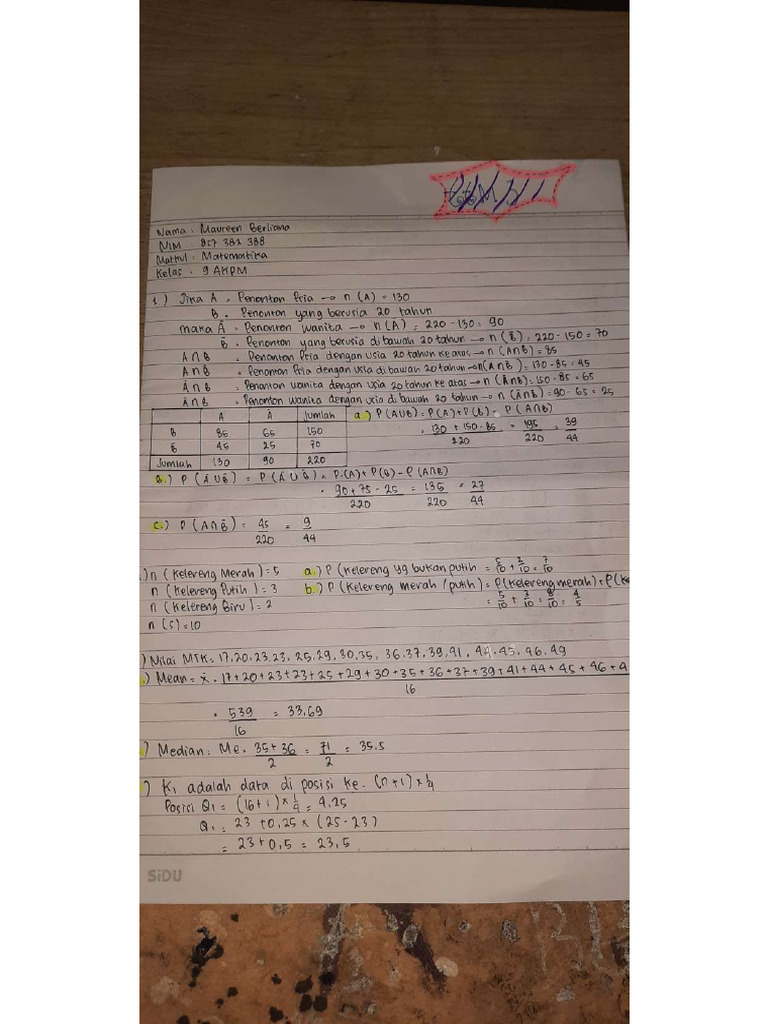 Nama : Maureen Berliana
NIM : 857 382 388
Matkul : Matematika
Kelas : 9 AKPM
1.) Jika A = Penonton Pria → n (A) = 130
B = Penonton yang berusia 20 tahun
maka Ā = Penonton wanita → n (Ā) = 220 - 130 = 90
B̄ = Penonton yang berusia dibawah 20 tahun → n (B̄) = 220 - 150 = 70
A ∩ B = Penonton Pria dengan usia 20 tahun ke atas → n (A∩B) = 85
A ∩ B̄ = Penonton Pria dengan usia di bawah 20 tahun → n(A∩B̄) = 130 - 85 = 45
Ā ∩ B = Penonton wanita dengan usia 20 tahun ke atas → n (Ā∩B) = 150 - 85 = 65
Ā ∩ B̄ = Penonton wanita dengan usia di bawah 20 tahun → n (Ā∩B̄) = 90 - 65 = 25
A Ā Jumlah
B 85 65 150
B̄ 45 25 70
Jumlah 130 90 220
a.) P (A∪B) = P(A) + P(B) - P(A∩B)
= 130 + 150 - 85 / 220 = 195 / 220 = 39 / 44
b.) P (Ā ∪ B̄) = P (Ā ∪ B̄) = P.(A) + P(B) - P(A∩B)
= 90 + 75 - 25 / 220 = 135 / 220 = 27 / 44
c.) P (A∩B̄) = 45 / 220 = 9 / 44
.) n (Kelereng Merah) = 5
n (Kelereng Putih) = 3
n (Kelereng Biru) = 2
n (S) = 10
a.) P (Kelereng yg bukan putih = 5/10 + 2/10 = 7/10
b.) P (Kelereng merah / putih) = P(Kelereng merah) + P(Ke
= 5/10 + 3/10 = 8/10 = 4/5
) Nilai MTK = 17, 20, 23, 23, 25, 29, 30, 35, 36, 37, 39, 41, 44, 45, 46, 49
.) Mean = x̄ = 17 + 20 + 23 + 23 + 25 + 29 + 30 + 35 + 36 + 37 + 39 + 41 + 44 + 45 + 46 + 4 / 16
= 539 / 16 = 33,69
) Median : Me = 35 + 36 / 2 = 71 / 2 = 35.5
) K₁ adalah data di posisi ke. (n+1) × 1/4
Posisi Q₁ = (16+1) × 1/4 = 4.25
Q₁ = 23 + 0,25 × (25 - 23)
= 23 + 0,5 = 23,5
SiDU